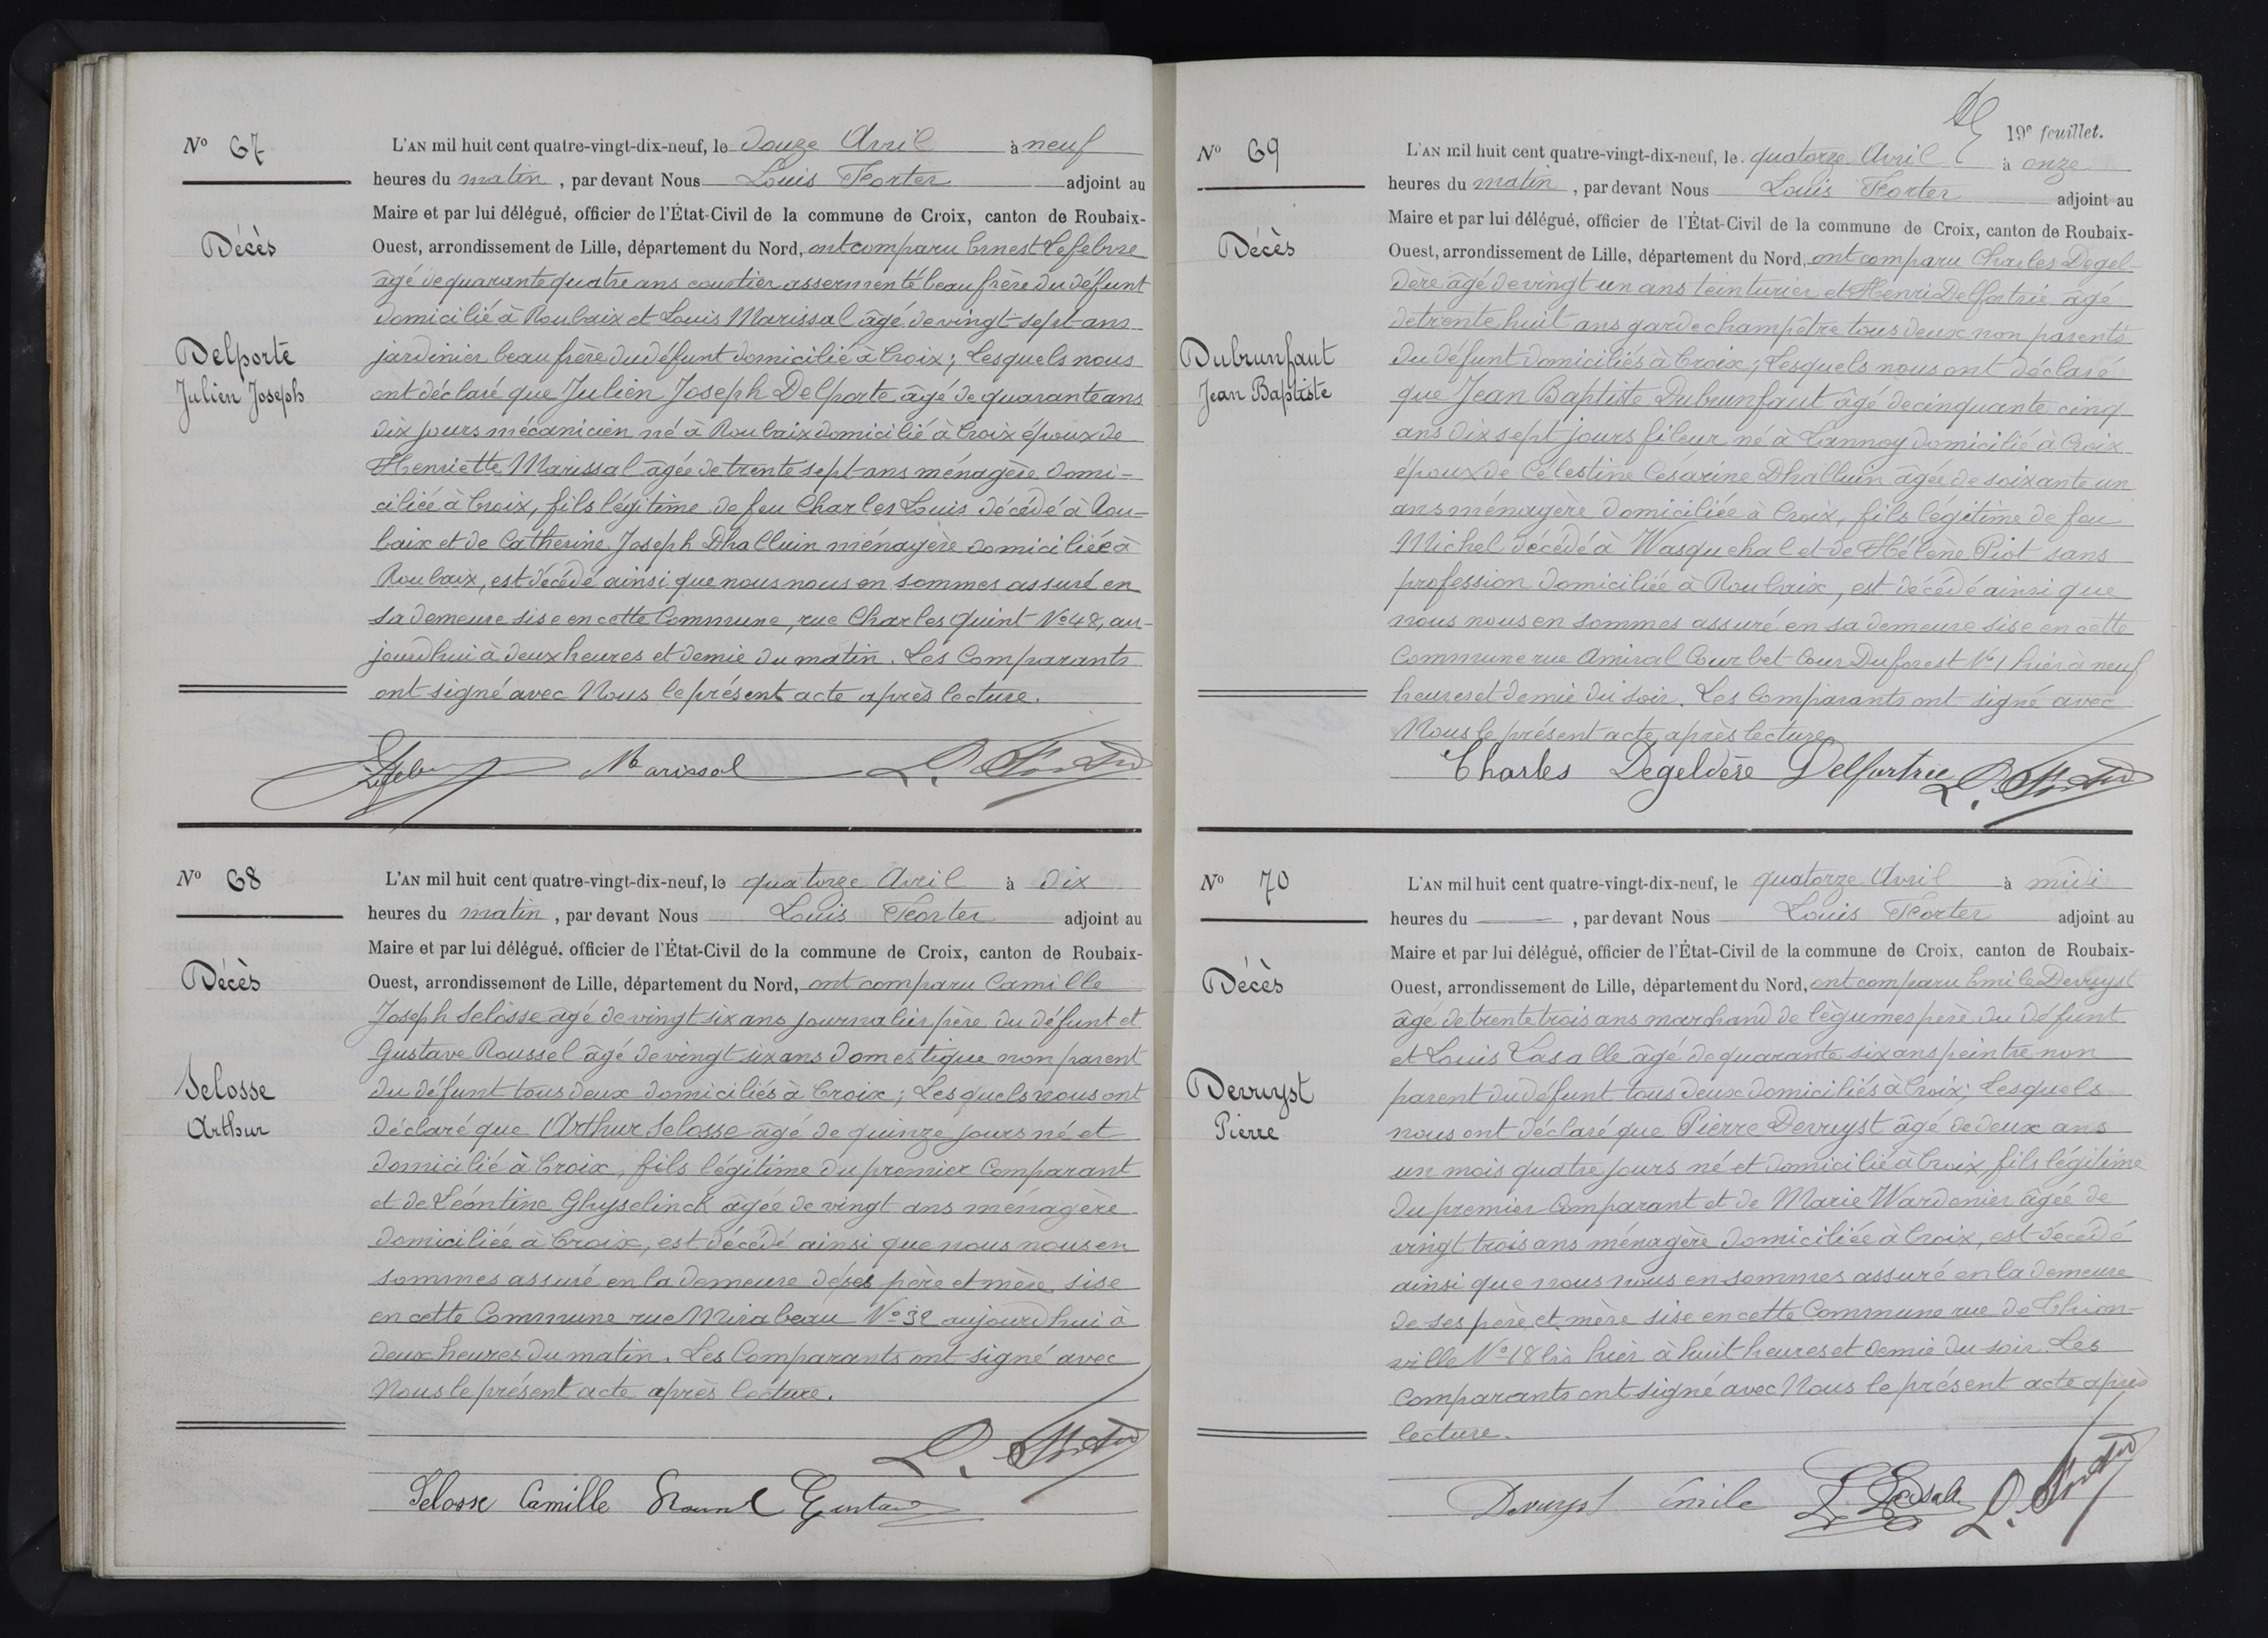 Nº 67
Décès
Delporte
Julien Joseph
L'AN mil huit cent quatre-vingt-dix-neuf, le douze Avril à neuf
heures du matin, par devant Nous Louis Horter adjoint au
Maire et par lui délégué, officier de l'État-Civil de la commune de Croix, canton de Roubaix-
Ouest, arrondissement de Lille, département du Nord, ont comparu Ernest Lefebvre
âgé de quarante quatre ans courtier assermenté beau frère du défunt
domicilié à Roubaix et Louis Marissal âgé de vingt-sept ans
jardinier beau frère du défunt domicilié à Croix; Lesquels nous
ont déclaré que Julien Joseph Delporte âgé de quarante ans
dix jours mécanicien né à Roubaix domicilié à Croix époux de
Henriette Marissal âgée de trente sept ans ménagère domi-
ciliée à Croix, fils légitime de feu Charles Louis décédé à Rou-
baix et de Catherine Joseph Dhalluin ménagère domiciliée à
Roubaix, est décédé ainsi que nous nous en sommes assuré en
sa demeure sise en cette Commune, rue Charles quint Nº 48, au-
jourdhui à deux heures et demie du matin. Les Comparants
ont signé avec Nous le présent acte après lecture.
Marissal
Nº 68
Décès
Selosse
Arthur
L'AN mil huit cent quatre-vingt-dix-neuf, le quatorze Avril à dix
heures du matin, par devant Nous Louis Horter adjoint au
Maire et par lui délégué, officier de l'État-Civil de la commune de Croix, canton de Roubaix-
Ouest, arrondissement de Lille, département du Nord, ont comparu Camille
Joseph Selosse âgé de vingt six ans journalier père du défunt et
Gustave Roussel âgé de vingt six ans domestique non parent
du défunt tous deux domiciliés à Croix; Lesquels nous ont
déclaré que Arthur Selosse âgé de quinze jours né et
domicilié à Croix, fils légitime du premier Comparant
et de Léontine Ghyselinck âgée de vingt ans ménagère
domiciliée à Croix, est décédé ainsi que nous nous en
sommes assuré en la demeure de ses père et mère sise
en cette Commune rue Mirabeau Nº 32 aujourdhui à
deux heures du matin. Les Comparants ont signé avec
Nous le présent acte après lecture.
Selosse Camille Roussel Gustave
19e feuillet.
Nº 69
Décès
Dubrunfaut
Jean Baptiste
L'AN mil huit cent quatre-vingt-dix-neuf, le quatorze Avril à onze
heures du matin, par devant Nous Louis Horter adjoint au
Maire et par lui délégué, officier de l'État-Civil de la commune de Croix, canton de Roubaix-
Ouest, arrondissement de Lille, département du Nord, ont comparu Charles Degel-
dère âgé de vingt un ans teinturier et Henri Delfortrie âgé
de trente huit ans garde champêtre tous deux non parents
du défunt domiciliés à Croix; Lesquels nous ont déclaré
que Jean Baptiste Dubrunfaut âgé de cinquante cinq
ans dix sept jours fileur né à Lannoy domicilié à Croix
époux de Célestine Césarine Dhalluin âgée de soixante un
ans ménagère domiciliée à Croix, fils légitime de feu
Michel décédé à Wasquehal et de Hélène Piot sans
profession domiciliée à Roubaix, est décédé ainsi que
nous nous en sommes assuré en sa demeure sise en cette
Commune rue Amiral Courbet Cour Duforest Nº 1 hier à neuf
heures et demie du soir. Les Comparants ont signé avec
Nous le présent acte après lecture.
Charles Degeldère Delfortrie
Nº 70
Décès
Devuyst
Pierre
L'AN mil huit cent quatre-vingt-dix-neuf, le quatorze Avril à midi
heures du , par devant Nous Louis Horter adjoint au
Maire et par lui délégué, officier de l'État-Civil de la commune de Croix, canton de Roubaix-
Ouest, arrondissement de Lille, département du Nord, ont comparu Emile Devuyst
âgé de trente trois ans marchand de légumes père du défunt
et Louis Lasalle âgé de quarante six ans peintre non
parent du défunt tous deux domiciliés à Croix; Lesquels
nous ont déclaré que Pierre Devuyst âgé de deux ans
un mois quatre jours né et domicilié à Croix, fils légitime
du premier Comparant et de Marie Wardenier âgée de
vingt trois ans ménagère domiciliée à Croix, est décédé
ainsi que nous nous en sommes assuré en la demeure
de ses père et mère sise en cette Commune rue de Thion-
ville Nº 18 bis hier à huit heures et demie du soir. Les
Comparants ont signé avec Nous le présent acte après
lecture.
Devuyst Émile L. Lasalle